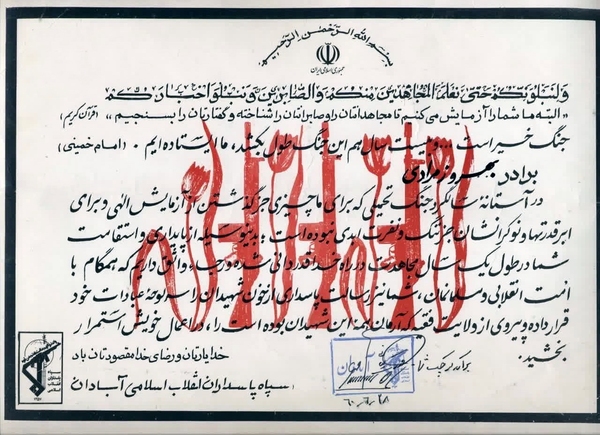 بسم الله الرحمن الرحیم
جمهوری اسلامی ایران
ولنبلونکم حتی نعلم المجاهدین منکم والصابرین ونبلوا اخبارکم
"البته ما شما را آزمایش می کنیم تا مجاهدانتان را و صابرانتان را شناخته و گفتارتان را بسنجیم" (قرآن کریم)
جنگ خیر است ... و بیست سال هم این جنگ طول بکشد، ما ایستاده ایم. (امام خمینی)
برادر بهروز مرادی
در آستانه سالگرد جنگ تحمیلی که برای ما چیزی جز گذشتن از آزمایش الهی و برای
ابرقدرتها و نوکرانشان جز ننگ و نفرت ابدی نبوده است، بدینوسیله از پایداری و استقامت
شما در طول یک سال مجاهدت در راه خدا قدردانی شده و رجاء واثق داریم که همگام با
امت انقلابی و مسلمانمان، شما نیز رسالت پاسداری از خون شهیدان را سرلوحه عبادات خود
قرار داده و پیروی از ولایت فقیه که آرمان همه این شهیدان بوده است را، در اعمال خویش استمرار
بخشید.
خدا یارتان و رضای خدا مقصودتان باد
سپاه پاسداران انقلاب اسلامی آبادان
۶۰/۶/۲۸